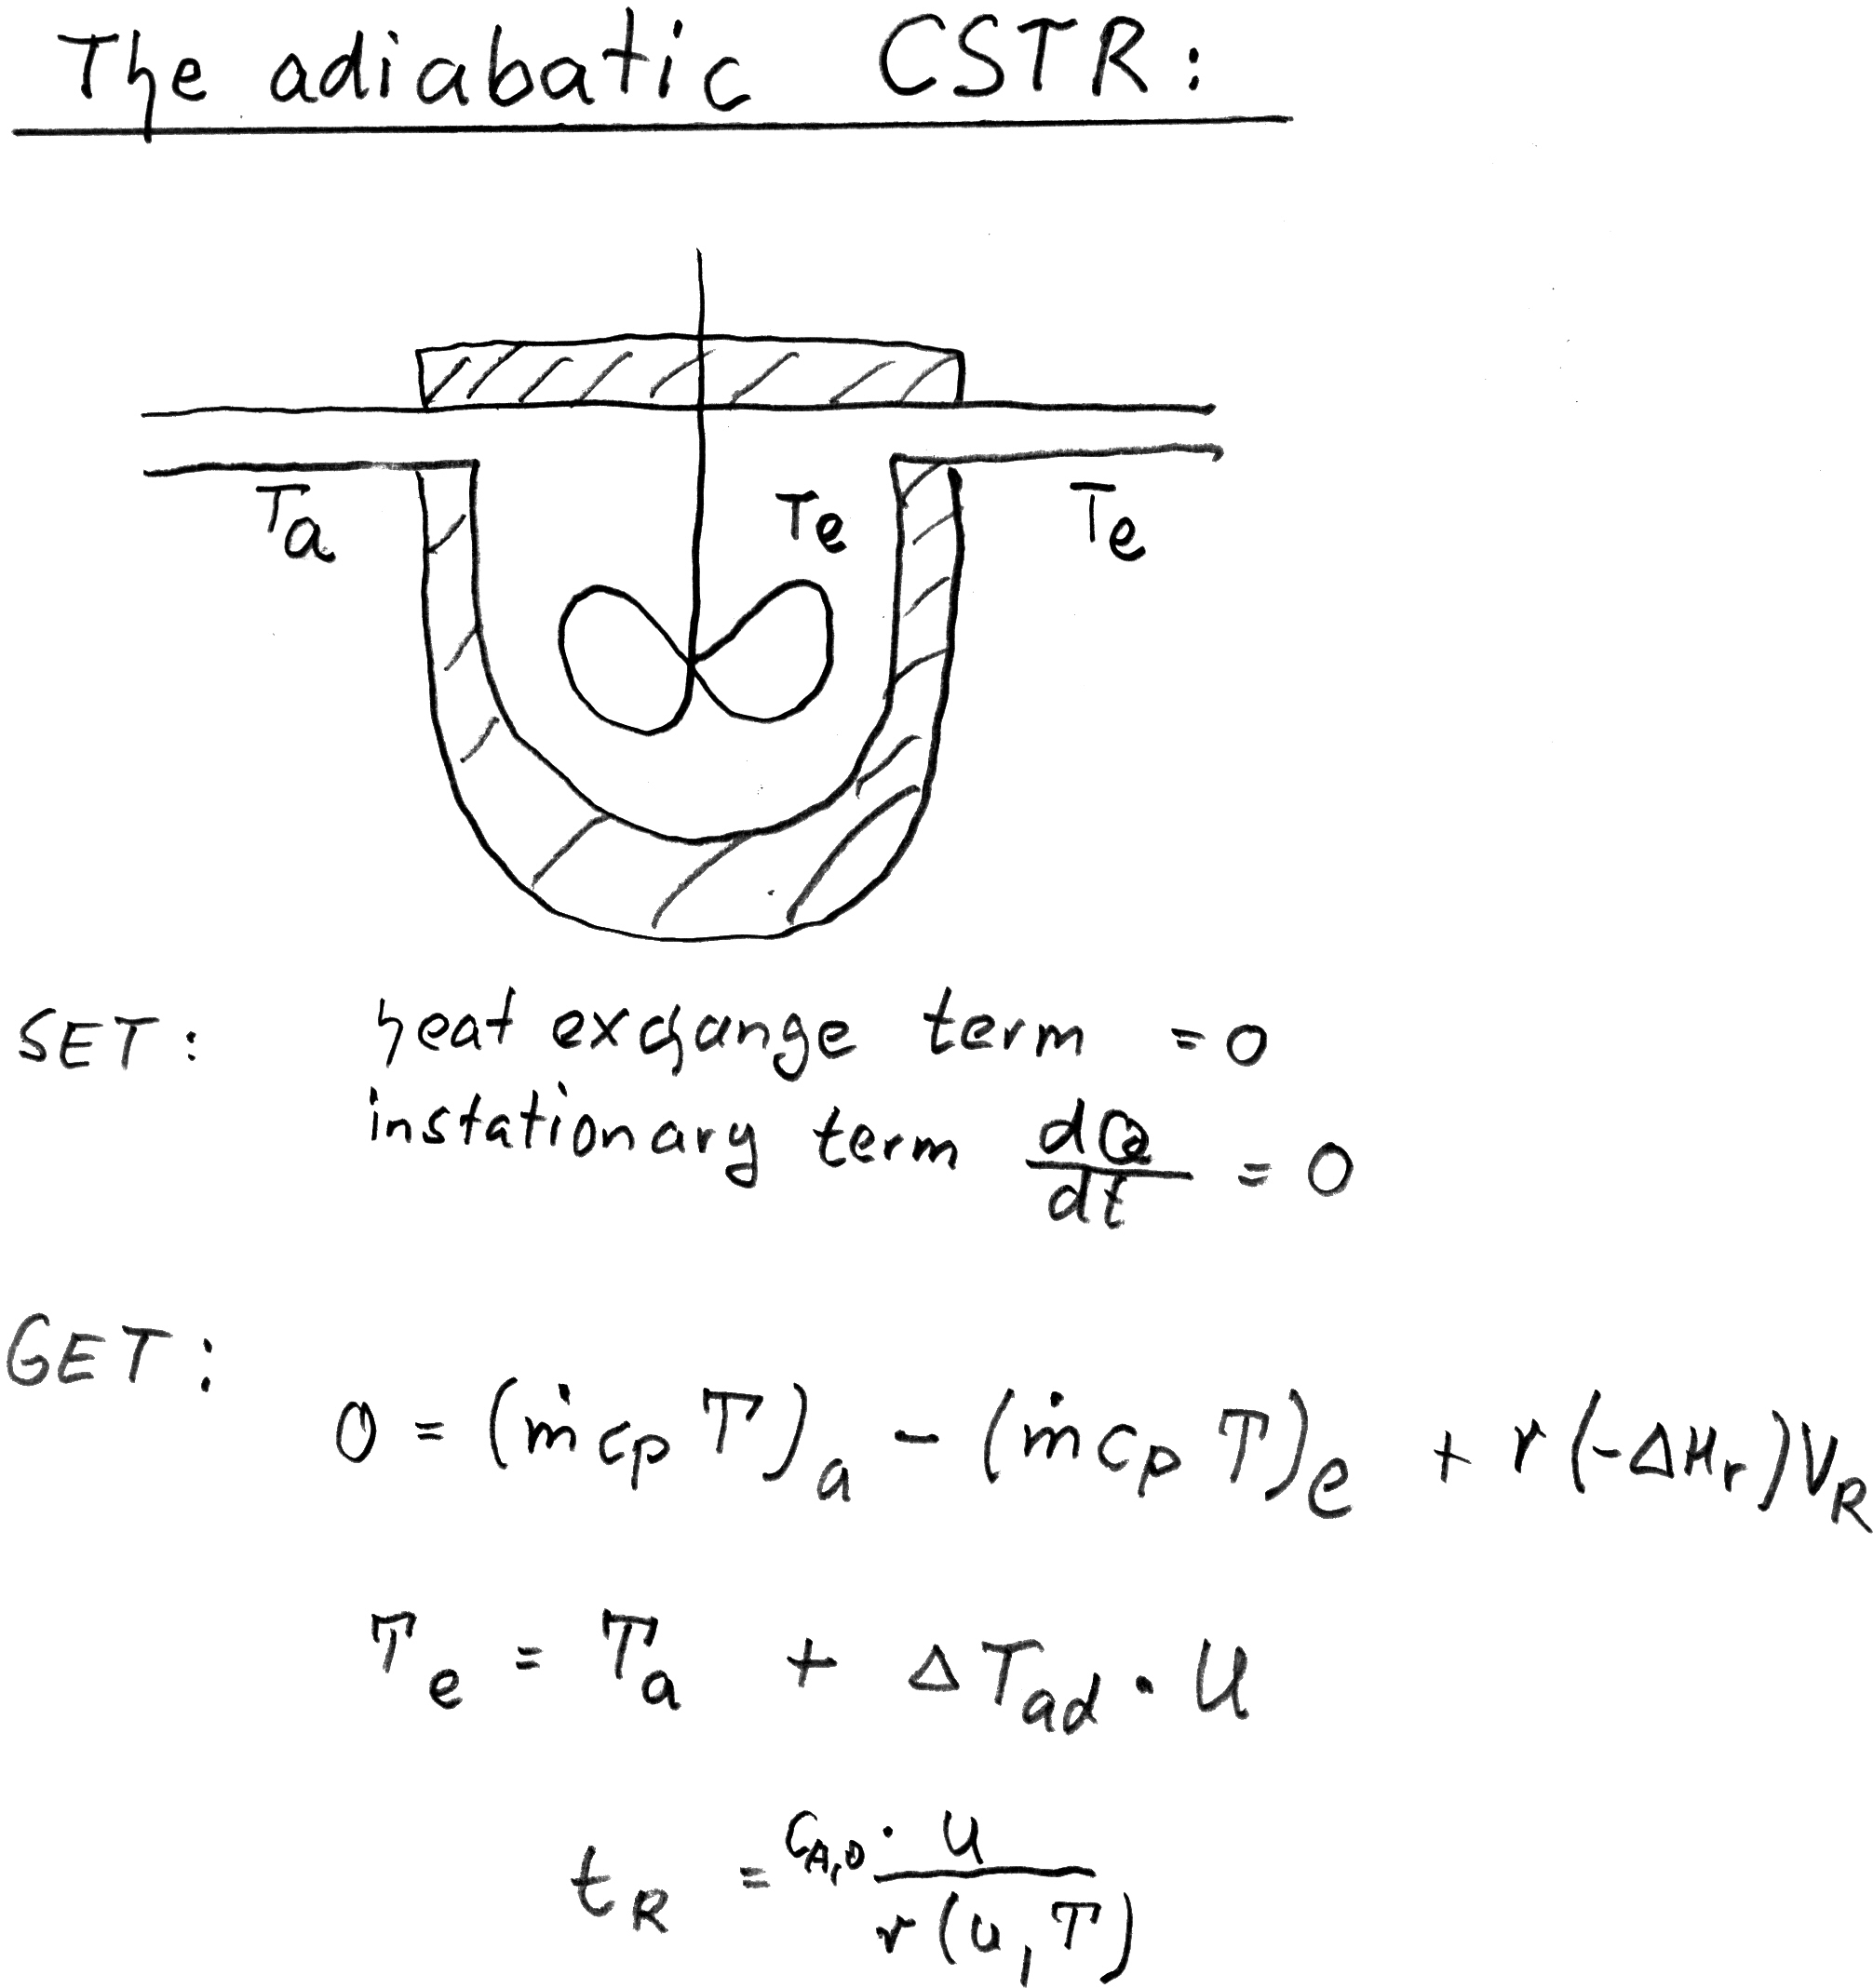 The adiabatic CSTR:
Ta Te Te
SET: heat exchange term = 0
instationary term dQ/dt = 0
GET:
0 = (ṁ cp T)a - (ṁ cp T)e + r(-ΔHr)VR
Te = Ta + ΔTad · U
tR = CA,0 · U / r(U, T)